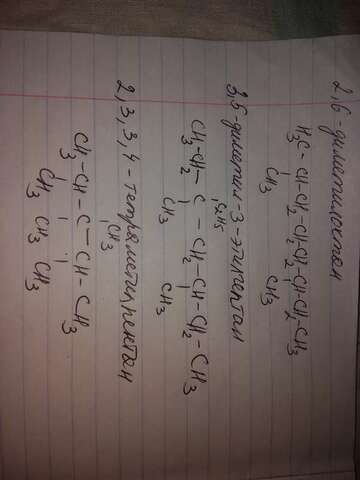 2,6-диметилоктан
H3C-CH-CH2-CH2-CH2-CH-CH2-CH3
CH3 CH3
3,5-диметил-3-этилгептан
C2H5
CH3-CH2-C-CH2-CH-CH2-CH3
CH3 CH3
2,3,3,4-тетраметилпентан
CH3
CH3-CH-C-CH-CH3
CH3 CH3 CH3